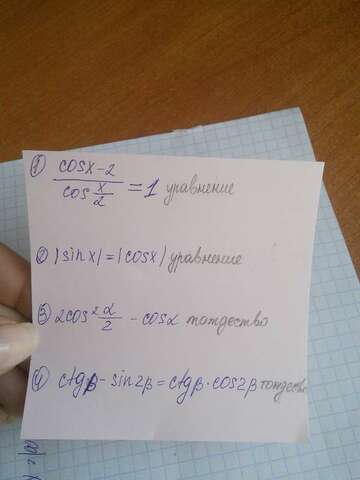 ① cosx-2 / cos x/2 = 1 уравнение
② |sinx|=|cosx| уравнение
③ 2cos² α/2 - cosα тождество
④ ctgβ - sin2β = ctgβ·cos2β тождество